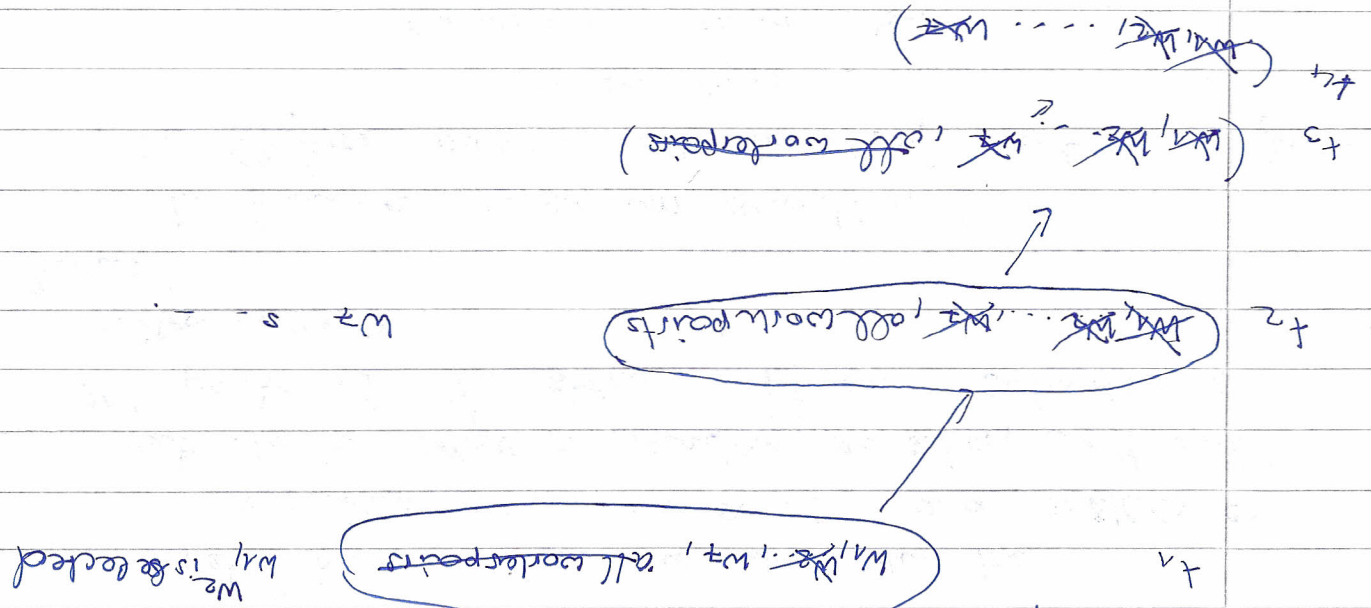 t1 (W1, W2.., W7, all workerspairs) W1, W2 is selected
t2 (W1, W2 ...., W7, all work pairs) W7 s - - .
t3 (W1, W2 - - W7, all workerpairs)
t4 (W1, W2, .... W7)